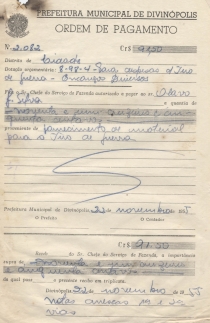 PREFEITURA MUNICIPAL DE DIVINÓPOLIS
ORDEM DE PAGAMENTO
N.º 2.082 Cr$ 91,50
Distrito da cidade
Dotação orçamentária: 8-98-4- Para despesas do Tiro
de Guerra - Encargos Diversos
O Sr. Chefe do Serviço da Fazenda autorizado a pagar ao sr. Olavo
Silva a quantia de
noventa e um cruzeiros e cin-
quenta centavos
proveniente de fornecimento de material
para o Tiro de Guerra
Prefeitura Municipal de Divinópolis, 22 de novembro de 195
O Prefeito O Contador
Cr$ 91,50
do Sr. Chefe do Serviço da Fazenda, a importância
noventa e um cruzeiros
e cinquenta centavos
da qual passo o presente recibo em triplicata.
Divinópolis, 22 de novembro de 195
notas anexas